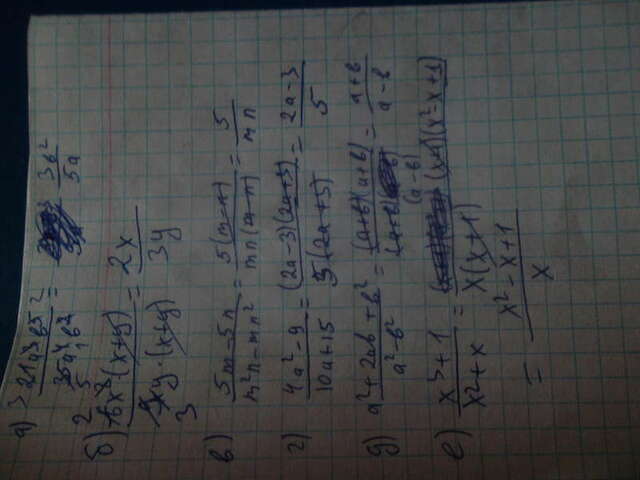 а) 21a³b⁵/35a⁴b³ = 3b²/5a
б) 6x²·(x+y)/9xy·(x+y) = 2x/3y
в) 5m-5n/m²n-mn² = 5(m-n)/mn(m-n) = 5/mn
г) 4a²-9/10a+15 = (2a-3)(2a+3)/5(2a+3) = 2a-3/5
д) a²+2ab+b²/a²-b² = (a+b)(a+b)/(a+b)(a-b) = a+b/a-b
е) x³+1/x²+x = (x+1)(x²-x+1)/x(x+1)
= x²-x+1/x